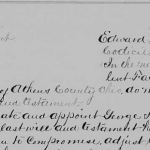 Edward
Codicil
In the na
lent Fa
of Athens County Ohio, do m
and testament.
ate and appoint George
last will and testament
to Compromise, adjust